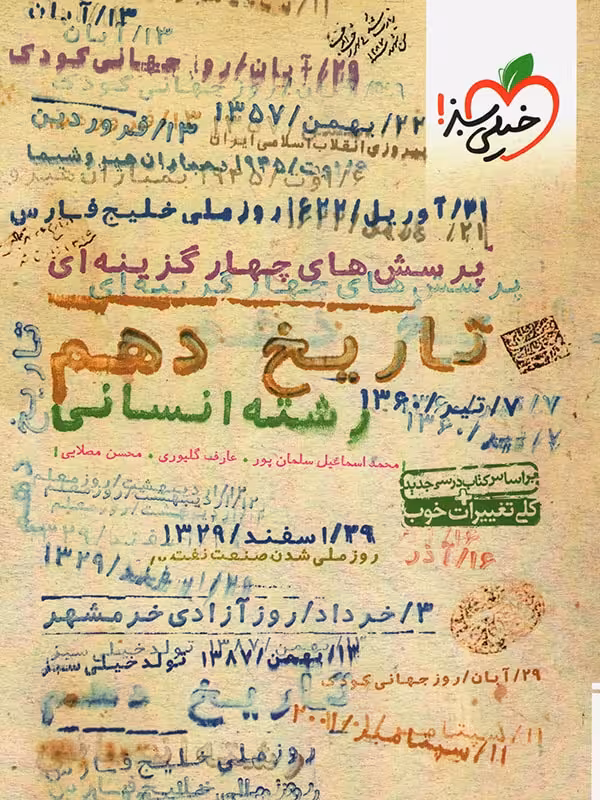 ۱۳/آبان
۱۳/آبان
۲۹/آبان/روز جهانی کودک
خیلی سبز!
۲۲/بهمن/۱۳۵۷
۱۳/فروردین
پیروزی انقلاب اسلامی ایران
۶/اوت/۱۹۴۵ بمباران هیروشیما
۲۱/آوریل/۱۶۲۲ روز ملی خلیج فارس
پرسش‌های چهارگزینه‌ای
پرسش‌های چهارگزینه‌ای
تاریخ دهم
تاریخ
رشته انسانی
۷/تیر/۱۳۶۰
محمد اسماعیل سلمان پور • عارف گلپوری • محسن مصلایی
براساس کتاب درسی جدید
+
کلی تغییرات خوب
۱۲/اردیبهشت/روز معلم
۲۹/اسفند/۱۳۲۹
روز ملی شدن صنعت نفت
۱۶/آذر
۲۹/اسفند/۱۳۲۹
۳/خرداد/روز آزادی خرمشهر
۱۳/بهمن/۱۳۸۷ تولد خیلی سبز
۲۹/آبان/روز جهانی کودک
تاریخ دهم
۱۱/سپتامبر/۲۰۰۱
روز ملی خلیج فارس
روز ملی خلیج فارس